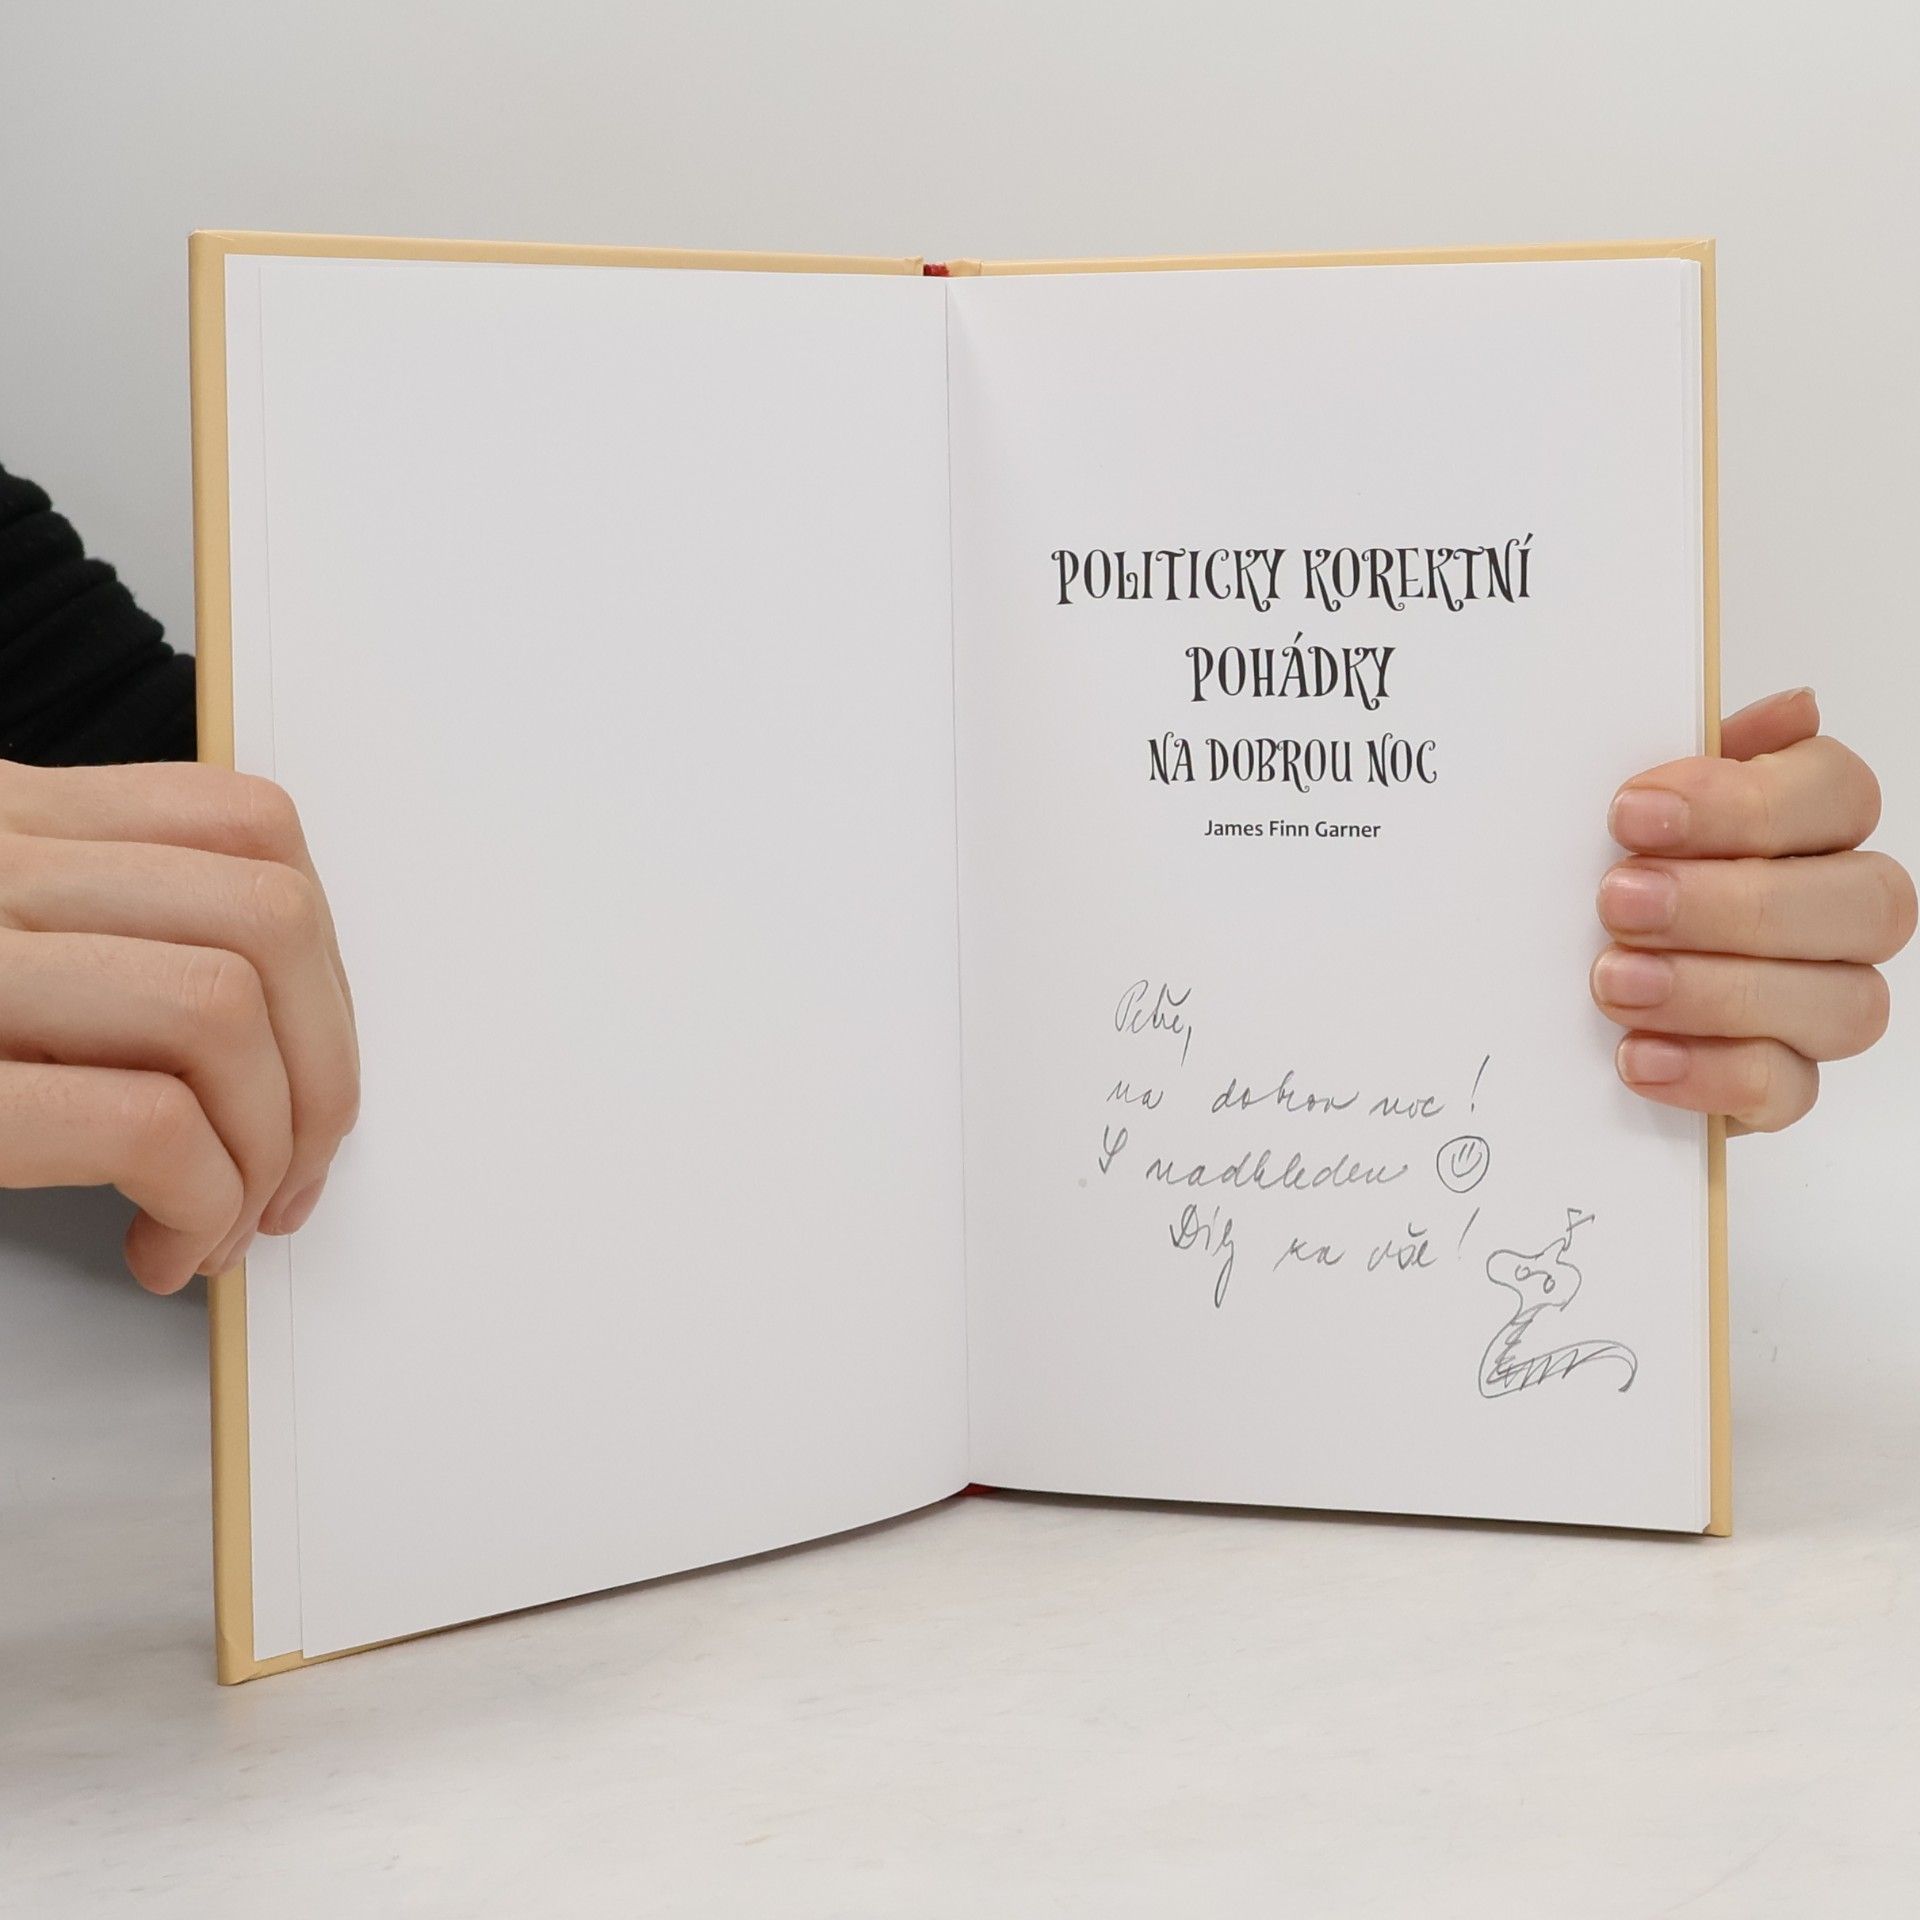 POLITICKY KOREKTNÍ
POHÁDKY
NA DOBROU NOC
James Finn Garner
Petře,
na dobrou noc!
S nadhledem
Díky za vše!